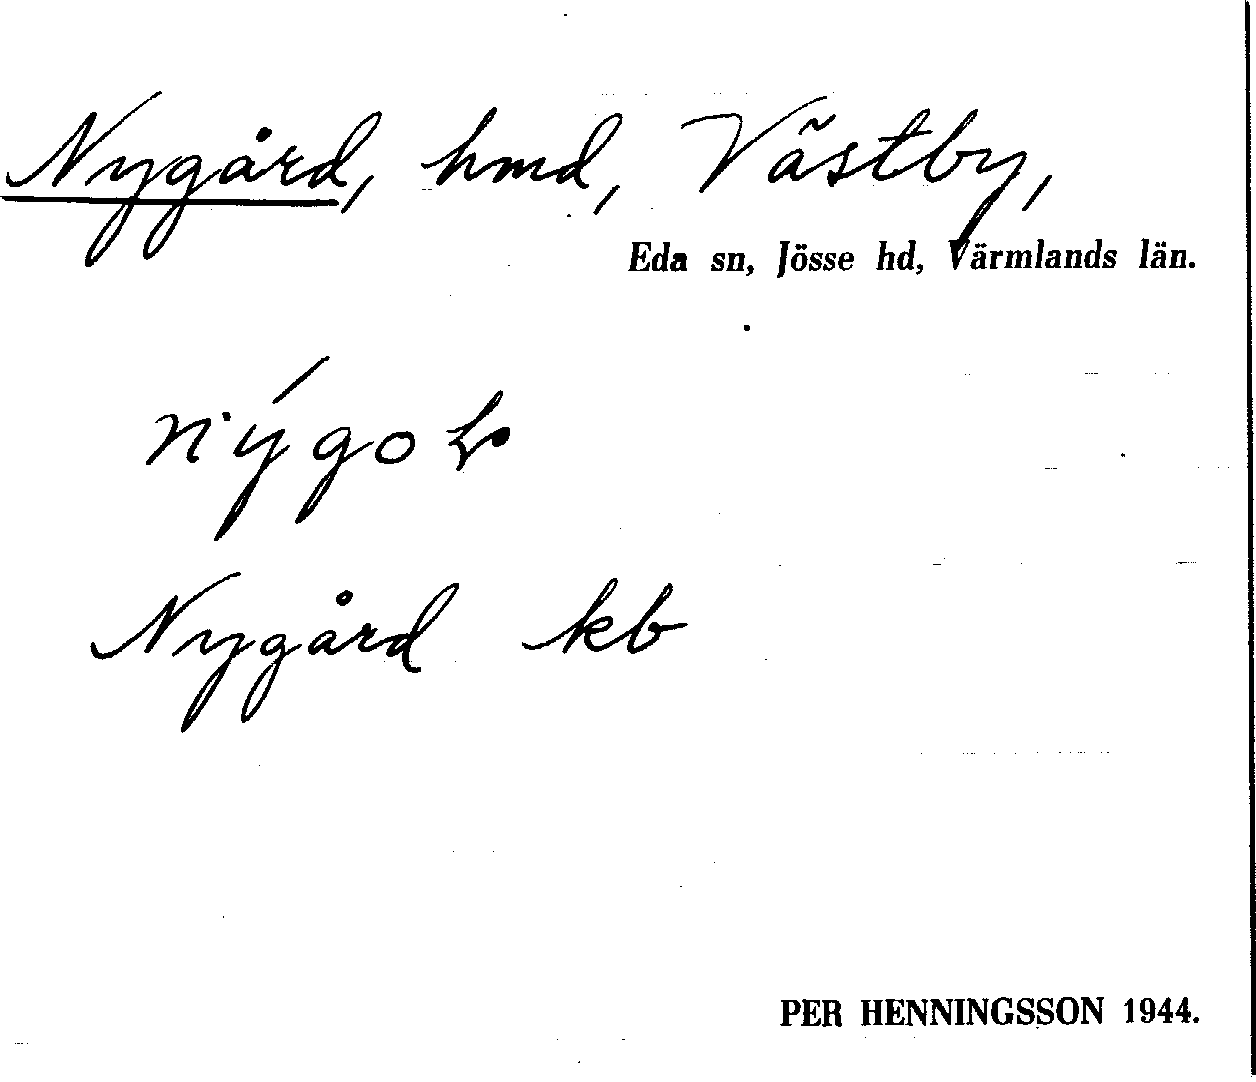 Nygård, hmd, Västby,
Eda sn, Jösse hd, Värmlands län.
Nygård kb
PER HENNINGSSON 1944.